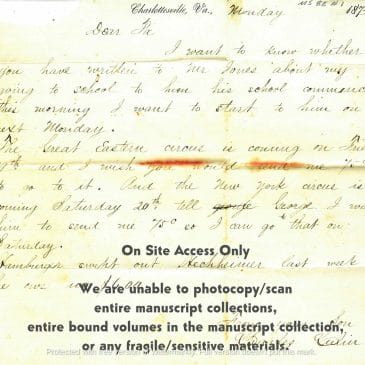 Charlottesville, Va., Monday MS BE N 1 187
Dear Pa
I want to know whether
you have written to Mr Jones about my
going to school to him his school commence
this morning I want to start to him on
next Monday.
The Great Eastern circus is coming on
9th and I wish you would send me 75c
to go to it. And the New York circus is
coming Saturday 20th tell Geord I we
him to send me 75c so I can go that on
Saturday.
Hamburger swept out Hechheimer last week
he ows
On Site Access Only
We are unable to photocopy/scan
entire manuscript collections,
entire bound volumes in the manuscript collection,
or any fragile/sensitive materials.
son
Charles
Protected with free version of Watermarkly. Full version doesn't put this mark.